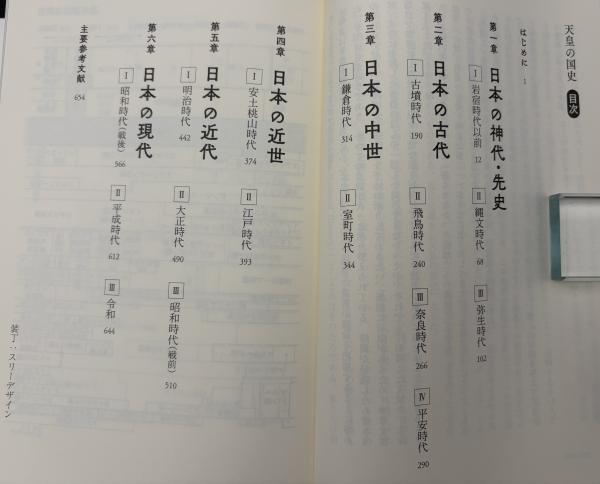 天皇の国史 目次
はじめに 1
第一章 日本の神代・先史
Ⅰ 岩宿時代以前 12 Ⅱ 縄文時代 68 Ⅲ 弥生時代 102
第二章 日本の古代
Ⅰ 古墳時代 190 Ⅱ 飛鳥時代 240 Ⅲ 奈良時代 266 Ⅳ 平安時代 290
第三章 日本の中世
Ⅰ 鎌倉時代 314 Ⅱ 室町時代 344
第四章 日本の近世
Ⅰ 安土桃山時代 374 Ⅱ 江戸時代 393
第五章 日本の近代
Ⅰ 明治時代 442 Ⅱ 大正時代 490 Ⅲ 昭和時代(戦前) 510
第六章 日本の現代
Ⅰ 昭和時代(戦後) 566 Ⅱ 平成時代 612 Ⅲ 令和 644
主要参考文献 654
装丁:スリーデザイン